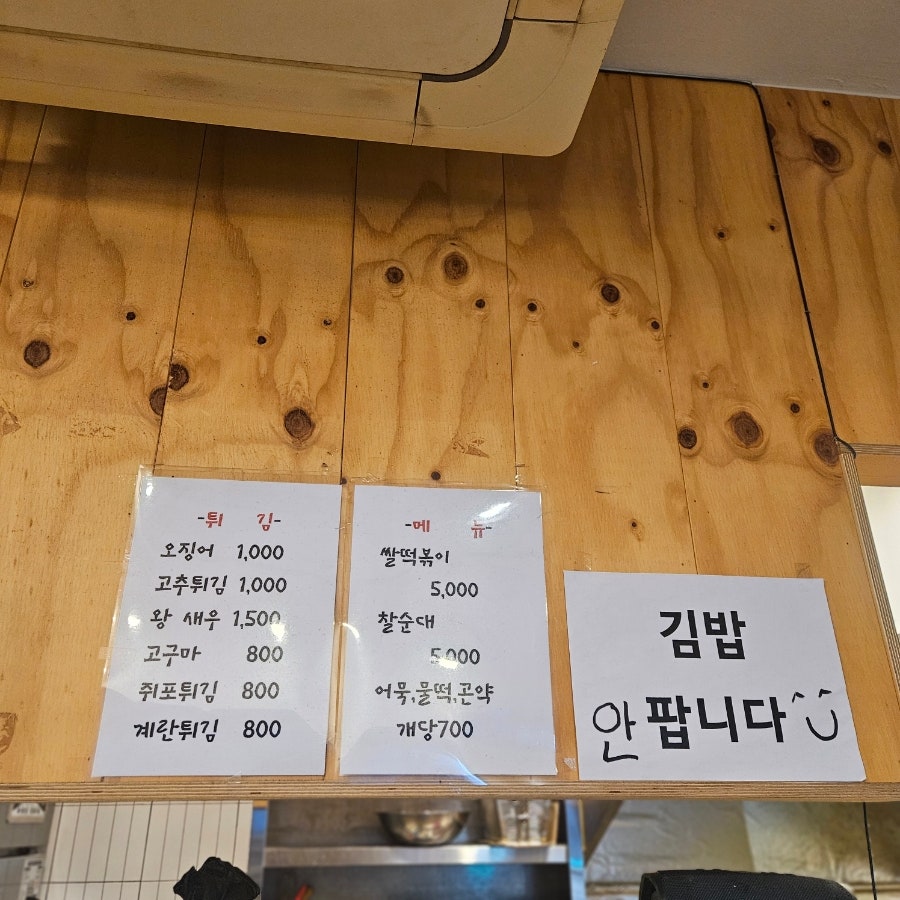 -튀 김-
오징어 1,000
고추튀김 1,000
왕 새우 1,500
고구마 800
쥐포튀김 800
계란튀김 800
-메 뉴-
쌀떡볶이
5,000
찰순대
5,000
어묵,물떡,곤약
개당700
김밥
안 팝니다